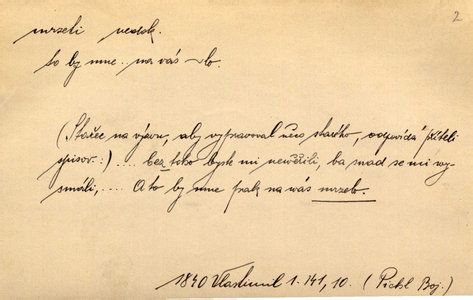 2
mrzeti nedok.
to by mne. na vás ~lo.
(Stařec na výzvu, aby vypravoval něco starého, odpovídá příteli
spisov.:).... bez toho byste mi nevěřili, ba snad se mi vy-
smáli,.... A to by mne pak na vás mrzelo.
1840 Vlastimil 1. 141, 10. (Pichl Boj.)